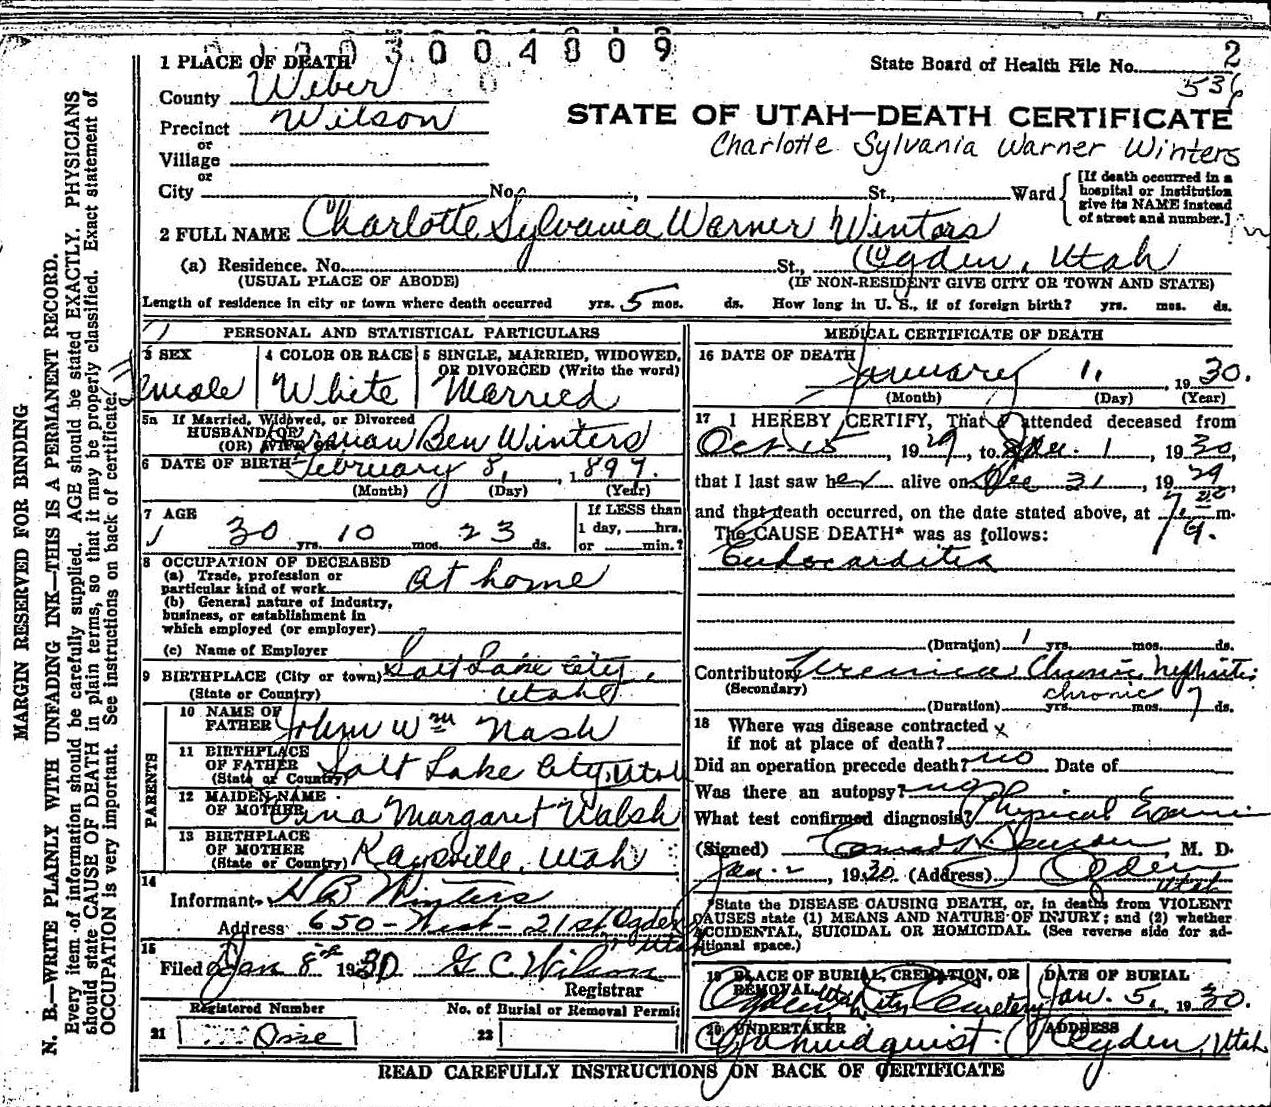 004809
1 PLACE OF DEATH
State Board of Health File No. 2
536
County Weber
Precinct Wilson
or
Village
or
City No. , St., Ward
[If death occurred in a hospital or institution give its NAME instead of street and number.]
STATE OF UTAH—DEATH CERTIFICATE
Charlotte Sylvania Warner Winters
2 FULL NAME Charlotte Sylvania Warner Winters
(a) Residence. No. St., Ogden, Utah
(USUAL PLACE OF ABODE) (IF NON-RESIDENT GIVE CITY OR TOWN AND STATE)
Length of residence in city or town where death occurred yrs. 5 mos. ds. How long in U. S., if of foreign birth? yrs. mos. ds.
PERSONAL AND STATISTICAL PARTICULARS
3 SEX
Female
4 COLOR OR RACE
White
5 SINGLE, MARRIED, WIDOWED, OR DIVORCED (Write the word)
Married
5a If Married, Widowed, or Divorced
HUSBAND OF
(OR) WIFE OF Herman Ben Winters
6 DATE OF BIRTH February 8, 1899.
(Month) (Day) (Year)
7 AGE
30 yrs. 10 mos. 23 ds.
If LESS than
1 day, hrs.
or min.?
8 OCCUPATION OF DECEASED
(a) Trade, profession or
particular kind of work At home
(b) General nature of industry,
business, or establishment in
which employed (or employer)
(c) Name of Employer
9 BIRTHPLACE (City or town) Salt Lake City,
(State or Country) Utah
PARENTS
10 NAME OF
FATHER John Wm Nash
11 BIRTHPLACE
OF FATHER Salt Lake City, Utah
(State or Country)
12 MAIDEN NAME
OF MOTHER Margaret Walsh
13 BIRTHPLACE
OF MOTHER
(State or Country) Kaysville, Utah
14
Informant H B Winters
Address 650 - West - 21 st, Ogden Utah
15
Filed Jan 8th 1930 G C Wilson
Registrar
Registered Number No. of Burial or Removal Permit
21 One 22
MEDICAL CERTIFICATE OF DEATH
16 DATE OF DEATH
January 1, 1930.
(Month) (Day) (Year)
17 I HEREBY CERTIFY, That I attended deceased from
Oct. 15, 1929, to Jan. 1, 1930,
that I last saw her alive on Dec 31, 1929,
and that death occurred, on the date stated above, at m.
The CAUSE DEATH* was as follows:
Endocarditis
(Duration) 1 yrs. mos. ds.
Contributory Uremia Chronic Nephritis
(Secondary) chronic
(Duration) yrs. mos. 7 ds.
18 Where was disease contracted
if not at place of death? x
Did an operation precede death? no Date of
Was there an autopsy? no
What test confirmed diagnosis? Physical Exam
(Signed) Conrad H. Jenson, M. D.
Jan. 2, 1930 (Address) Ogden Utah
*State the DISEASE CAUSING DEATH, or, in deaths from VIOLENT
CAUSES state (1) MEANS AND NATURE OF INJURY; and (2) whether
ACCIDENTAL, SUICIDAL OR HOMICIDAL. (See reverse side for ad-
ditional space.)
19 PLACE OF BURIAL, CREMATION, OR
REMOVAL
Ogden Utah City Cemetery
DATE OF BURIAL
Jan. 5, 1930.
20 UNDERTAKER
Lindquist
ADDRESS
Ogden, Utah
READ CAREFULLY INSTRUCTIONS ON BACK OF CERTIFICATE
MARGIN RESERVED FOR BINDING
N. B.—WRITE PLAINLY WITH UNFADING INK—THIS IS A PERMANENT RECORD.
Every item of information should be carefully supplied. AGE should be stated EXACTLY. PHYSICIANS
should state CAUSE OF DEATH in plain terms, so that it may be properly classified. Exact statement of
OCCUPATION is very important. See instructions on back of certificate.